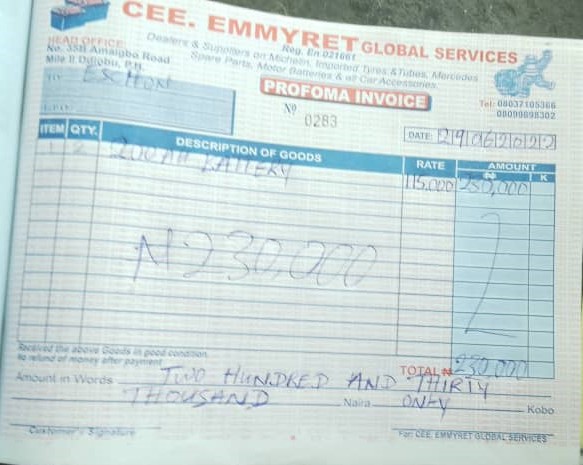 CEE. EMMYRET GLOBAL SERVICES
Reg. En 021661
HEAD OFFICE:
No. 35B Amaigbo Road
Mile II Diobu, P.H.
Dealers & Suppliers on Michelin, Imported Tyres & Tubes, Mercedes
Spare Parts, Motor Batteries & all Car Accessories.
Tel: 08037105366
08099098302
PROFOMA INVOICE
TO:
L.P.O.
Nº 0283
DATE: 29 06 2022
ITEM QTY. DESCRIPTION OF GOODS RATE AMOUNT
₦ K
1 2 200AH BATTERY 115,000 230,000
₦230,000
Received the above Goods in good condition.
No refund of money after payment
TOTAL ₦ 230,000
Amount in Words TWO HUNDRED AND THIRTY
THOUSAND Naira ONLY Kobo
Customer's Signature
For: CEE. EMMYRET GLOBAL SERVICES